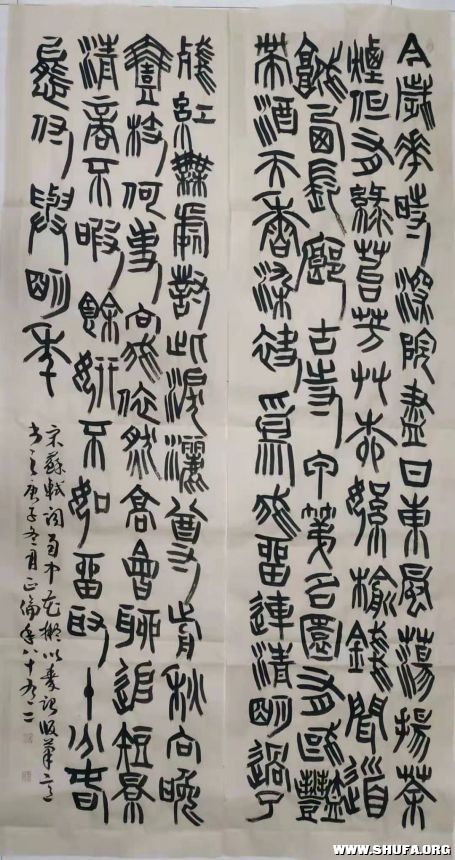 今歲花時深院盡日東風蕩揚茶
煙但有綠苔芳艸柳絮榆錢聞道
城西長廊古寺甲第名園有國豔
帶酒天香染袂為我留連清明過了
殘紅無處對此淚灑尊前秋向晚
一枝何事向我依然高會聊追短景
清商不暇餘妍不如留取十分春
態付與明年
宋蘇軾詞雨中花慢以秦詔版筆意
書之庚子冬月正倫年八十又二
WWW.SHUFA.ORG